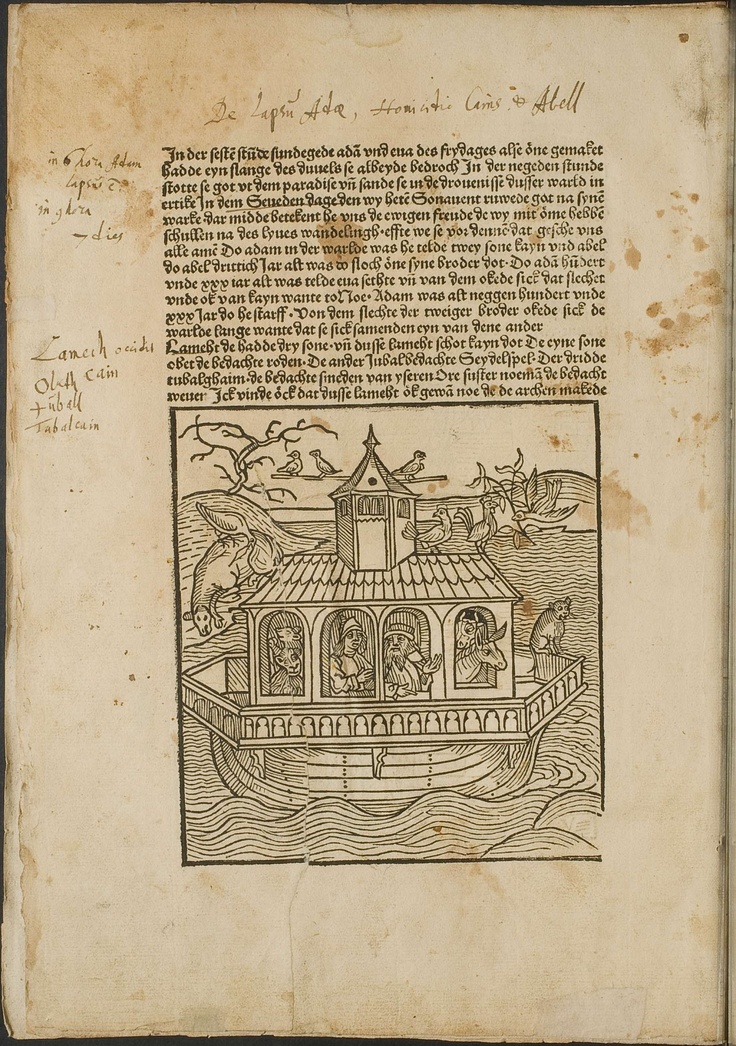 De Lapsu Adæ, Homicitio Cains & Abell
in 6 hora Adam
lapsus
in 9 hora
dies
In der sestē stūde sundegede adā vnd eua des frydages alse ōne gemaket
hadde eyn slange des duuels se albeyde bedroch In der negeden stunde
stotte se got vt dem paradise vn̄ sande se in de drouenisse dusser warld in
ertrike In dem Seueden dage den wy hetē Sonauent ruwede got na synē
warke dar midde betekent he vns de ewigen freude de wy mit ōme hebbē
schullen na des lyues wandelingh· effte we se vordennē dat gesche vns
alle amē Do adam in der warlde was he telde twey sone kayn vnd abel
do abel drittich Jar alt was do sloch ōne syne broder dot· Do adā hūdert
vnde xxx iar alt was telde eua sethte vn̄ van dem okede sick dat slechet
vnde ok van kayn wante to Noe· Adam was alt neggen hundert vnde
xxx Jar do he starff· Von dem slechte der tweiger broder okede sick de
warlde lange wante dat se sick samenden eyn van dene ander
Lameht de hadde dry sone· vn̄ dusse lameht schot kayn dot De eyne sone
obet de bedachte roden· De ander Jubal bedachte Seydelspel· Der dridde
tubalghaim· de bedacht smeden van yseren Ore suster noemā de bedacht
weuer Jck vinde ōck dat dusse lameht ōk gewā noe de de archen makede
Lamech occidit
Cain
Tuball
Tabalcain